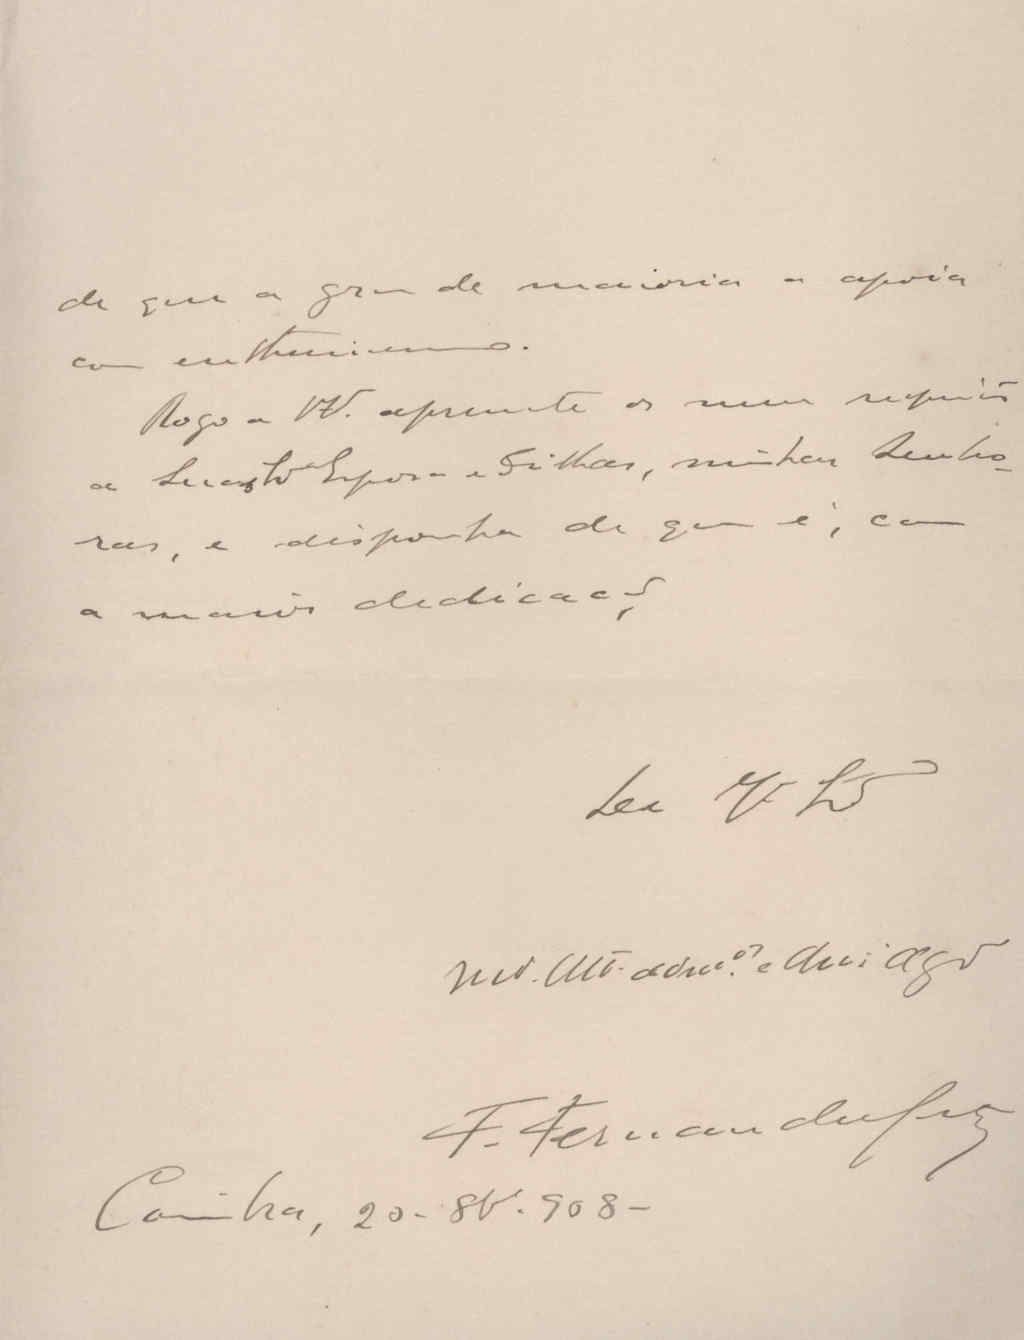 de que a grande maioria a apoia
com enthusiasmo.
Rogo a V. apresente os meus respeitos
a Sua Esposa e Filhas, minhas Senho-
ras, e disponha de quem é, com
a maior dedicação
De V.
Mto. Atto. admor. e Amigo
F. Fernandes
Coimbra, 20-8bro.908-